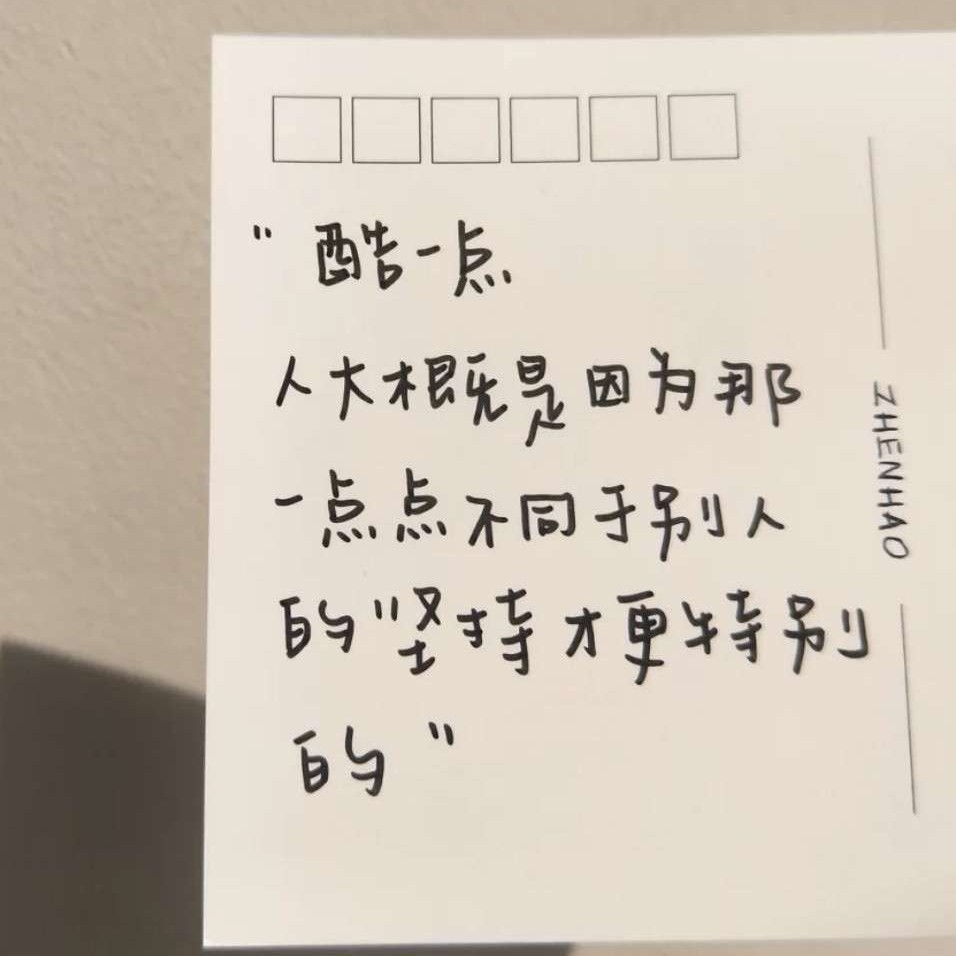 "酷一点
人大概是因为那
一点点不同于别人
的"坚持才更特别
的"
ZHENHAO